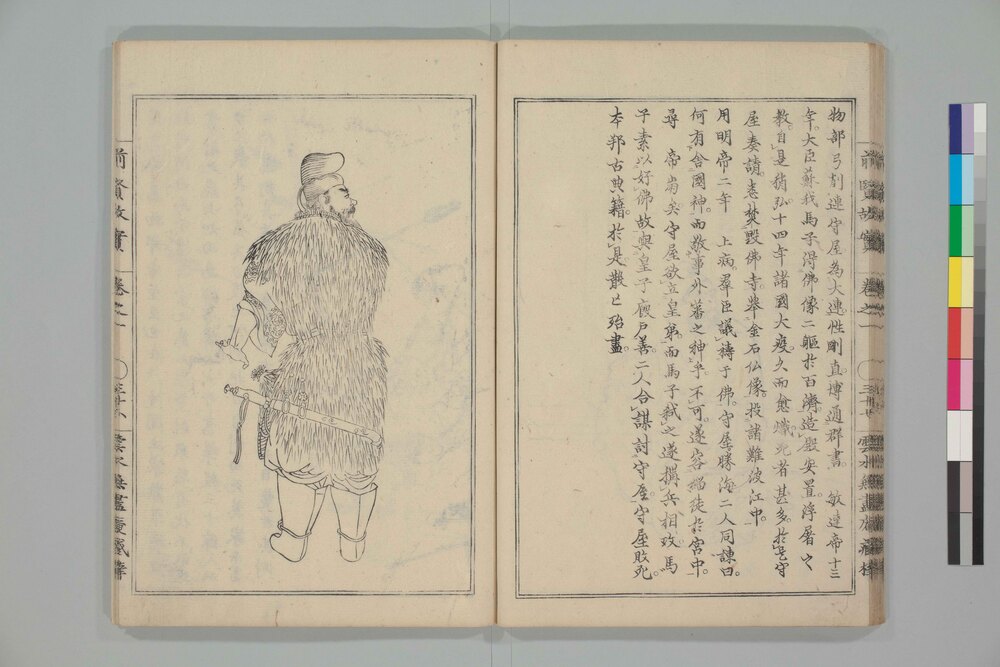 前賢故實 卷之一
雲水無盡庵藏梓
物部弓削連守屋為大連性剛直博通群書。 敏達帝十三
年。大臣蘇我馬子得佛像二軀於百濟造殿安置浮屠之
教。自是稍弘十四年諸國大疫久而愈熾死者甚多。於是守
屋奏請悉焚毀佛寺举金石仏像。投諸難波江中。
用明帝二年 上病。羣臣議祷于佛。守屋勝海二人同諫曰。
何有舍國神。而敬事外蕃之神乎。不可。遂容緇徒於宮中。
尋 帝崩矣守屋欲立皇弟。而馬子弑之遂構兵相攻馬
子素以好佛故與皇子廐戸善。二人合謀討守屋。守屋敗死
本邦古典籍。於是散亡殆盡。
前賢故實 卷之一
雲水無盡庵藏梓